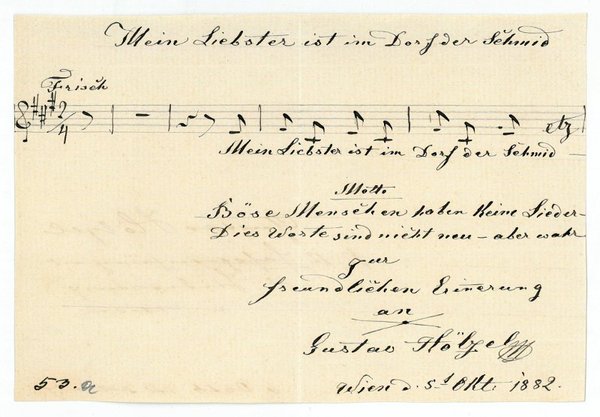 Mein Liebster ist im Dorf der Schmid
Frisch
2/4
etz
Mein Liebster ist im Dorf der Schmid –
Motto
Böse Menschen haben Keine Lieder –
Dies Worte sind nicht neu – aber wahr
zur
freundlichen Erinerung
an
Gustav Hölzel
Wien d. 1882.
53. a